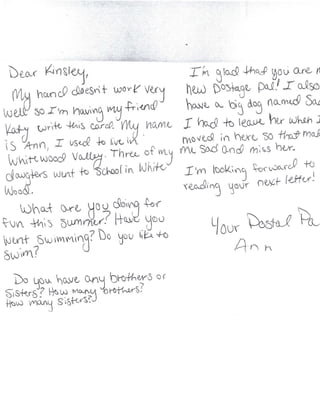 Dear Kinsley,
My hand doesn't work very
well so I'm having my friend
Katy write this card. My name
is Ann, I used to live in
Whitewood Valley. Three of my
daugters went to School in White
Wood.
What are you doing for
fun this summer? Have you
went swimming? Do you like to
swim?
Do you have any brothers or
Sisters? How many brothers?
How many sisters?
I'm glad that you are m
new Postage Pal! I also
have a big dog named Sad
I had to leave her when I
moved in here so that mak
me sad and miss her.
I'm looking forward to
reading your next letter!
Your Postal Pa
Ann